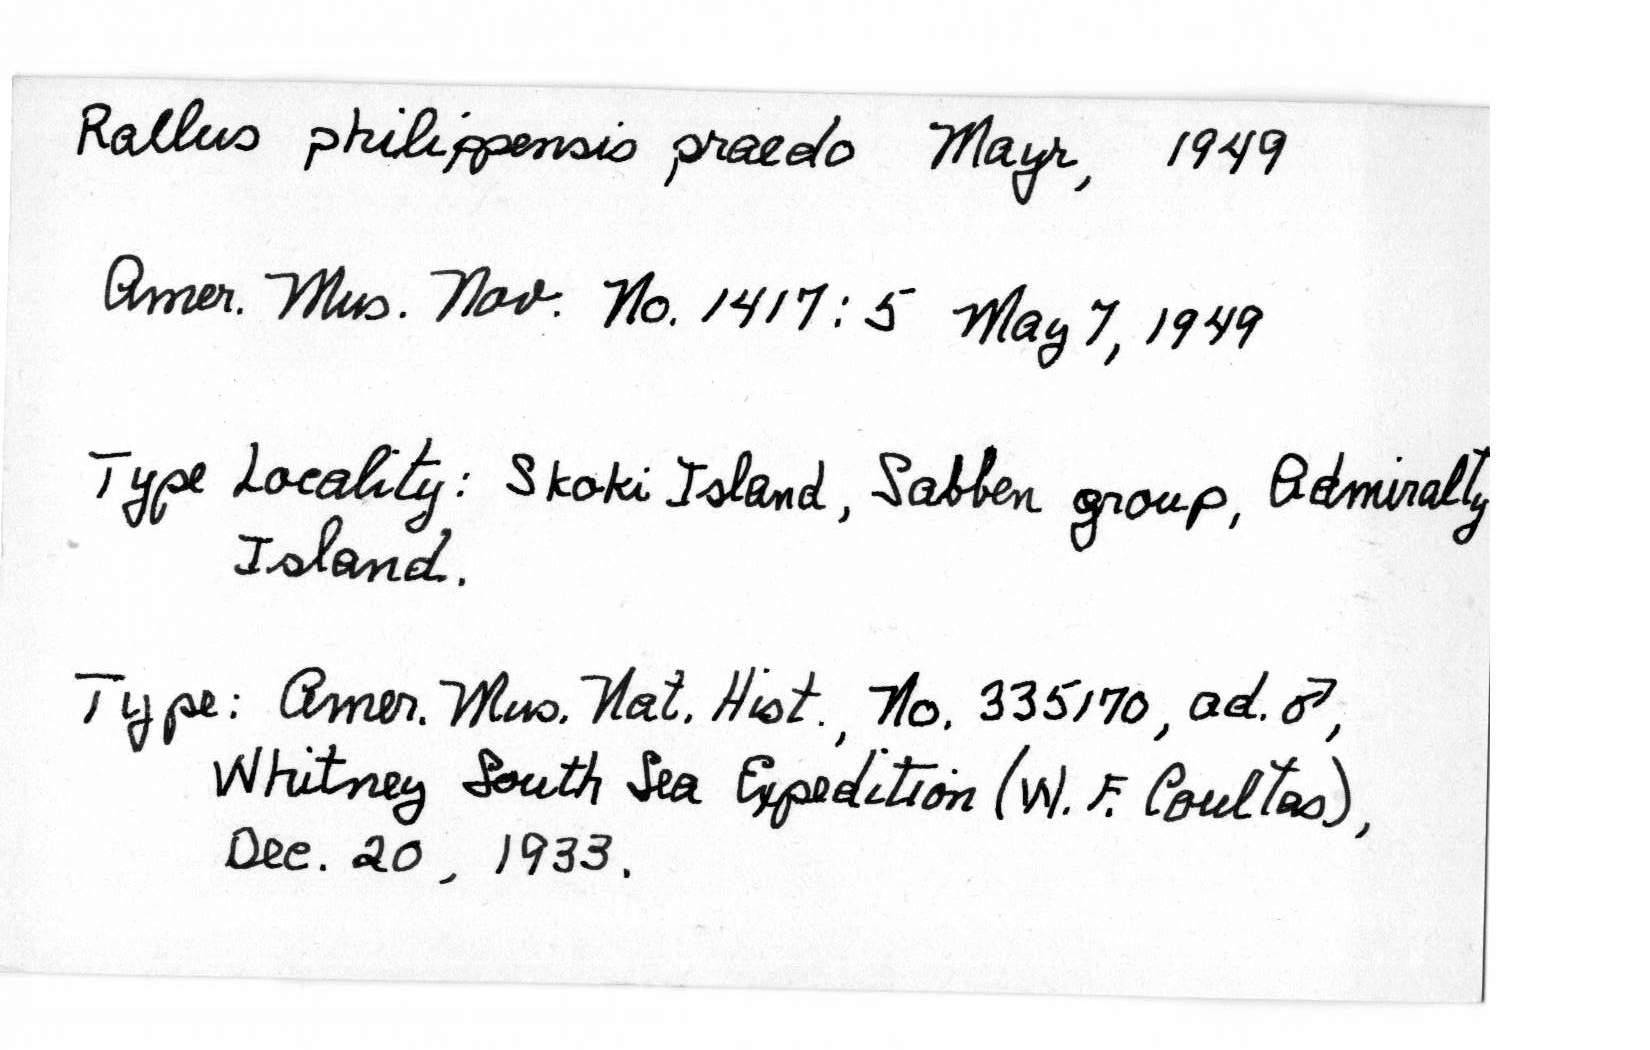 Rallus philippensis praedo Mayr, 1949
Amer. Mus. Nov. No. 1417:5 May 7, 1949
Type Locality: Skoki Island, Sabben group, Admiralty
Island.
Type: Amer. Mus. Nat. Hist., No. 335170, ad. ♂,
Whitney South Sea Expedition (W. F. Coultas),
Dec. 20, 1933.